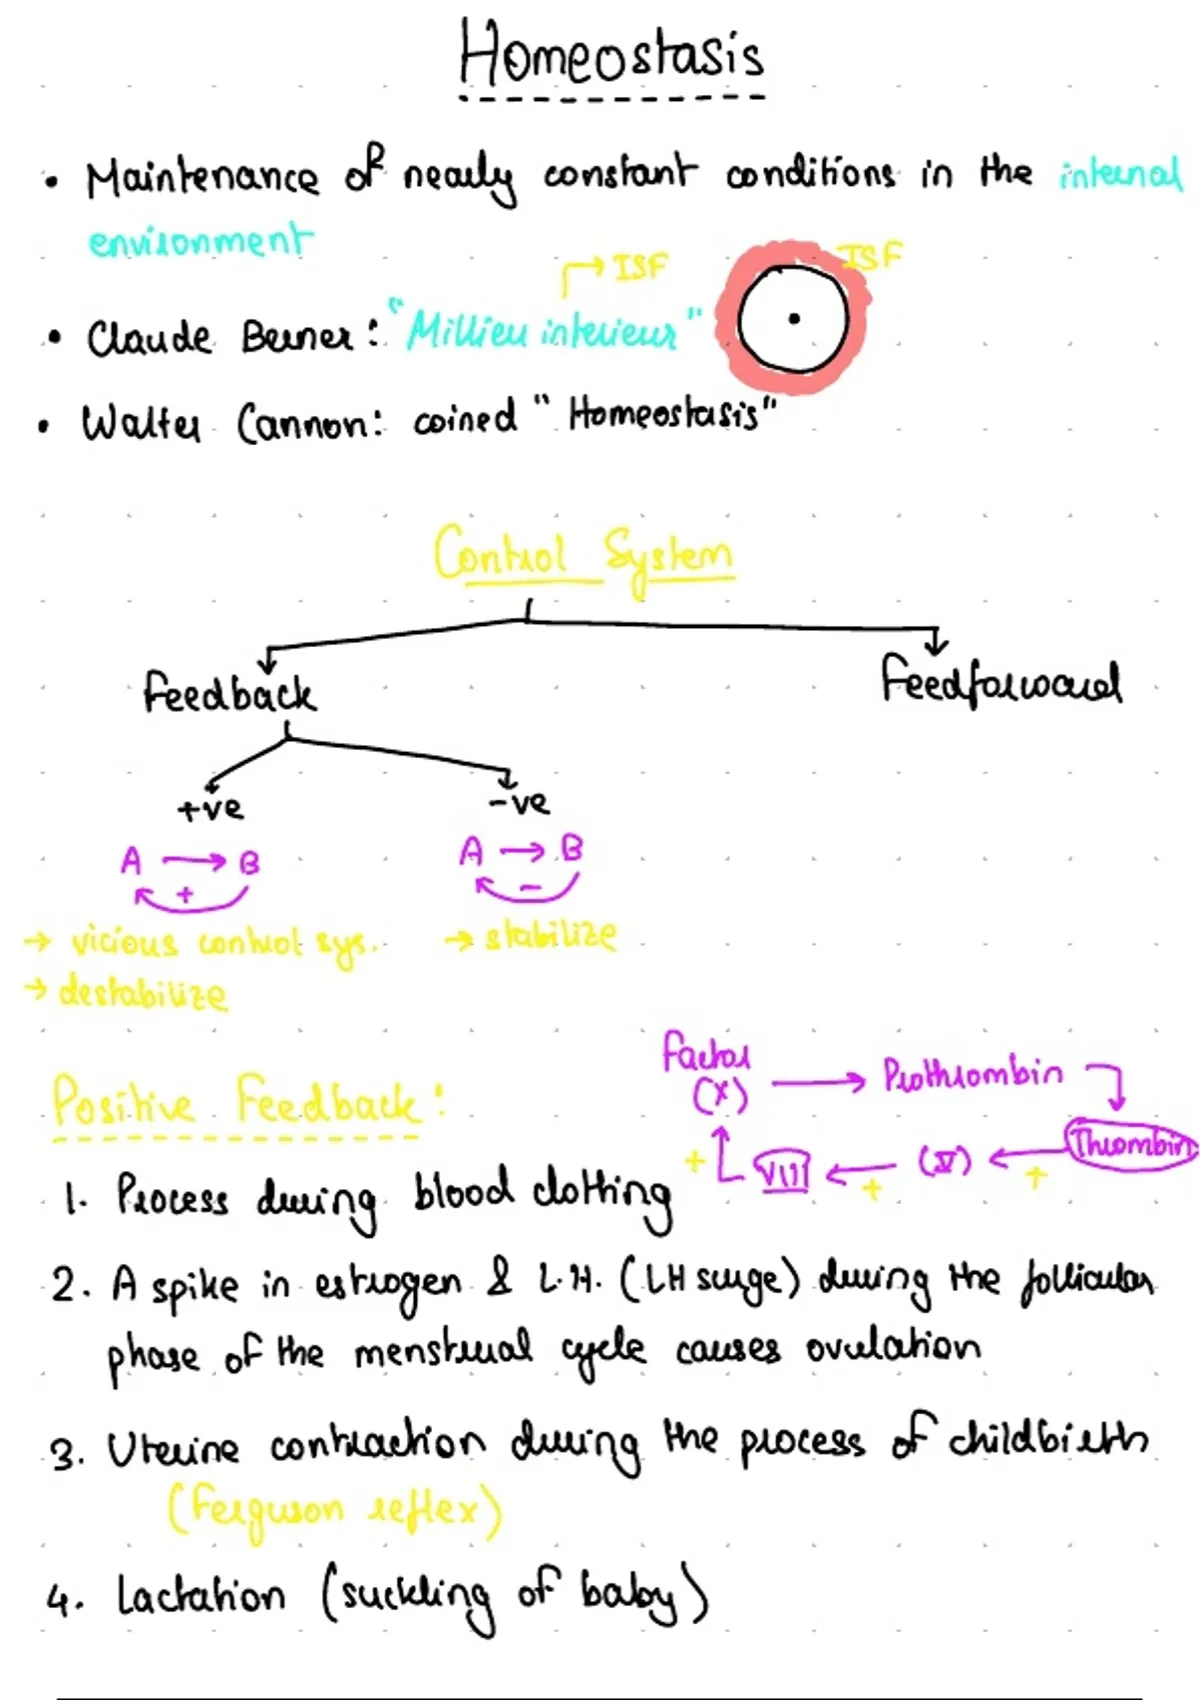 Homeostasis
• Maintenance of nearly constant conditions in the internal
environment
→ ISF
ISF
• Claude Berner: "Millieu interieur"
• Walter Cannon: coined "Homeostasis"
Control System
Feedback
Feedforward
+ve
-ve
A → B
+
A → B
-
→ vicious control sys.
→ stabilize
→ destabilize
Factor
(X) → Prothrombin
Thrombin
(V)
VIII
+
+
+
Positive Feedback:
1. Process during blood clotting
2. A spike in estrogen & L.H. (LH surge) during the follicular
phase of the menstrual cycle causes ovulation
3. Uterine contraction during the process of childbirth
(Ferguson reflex)
4. Lactation (suckling of baby)